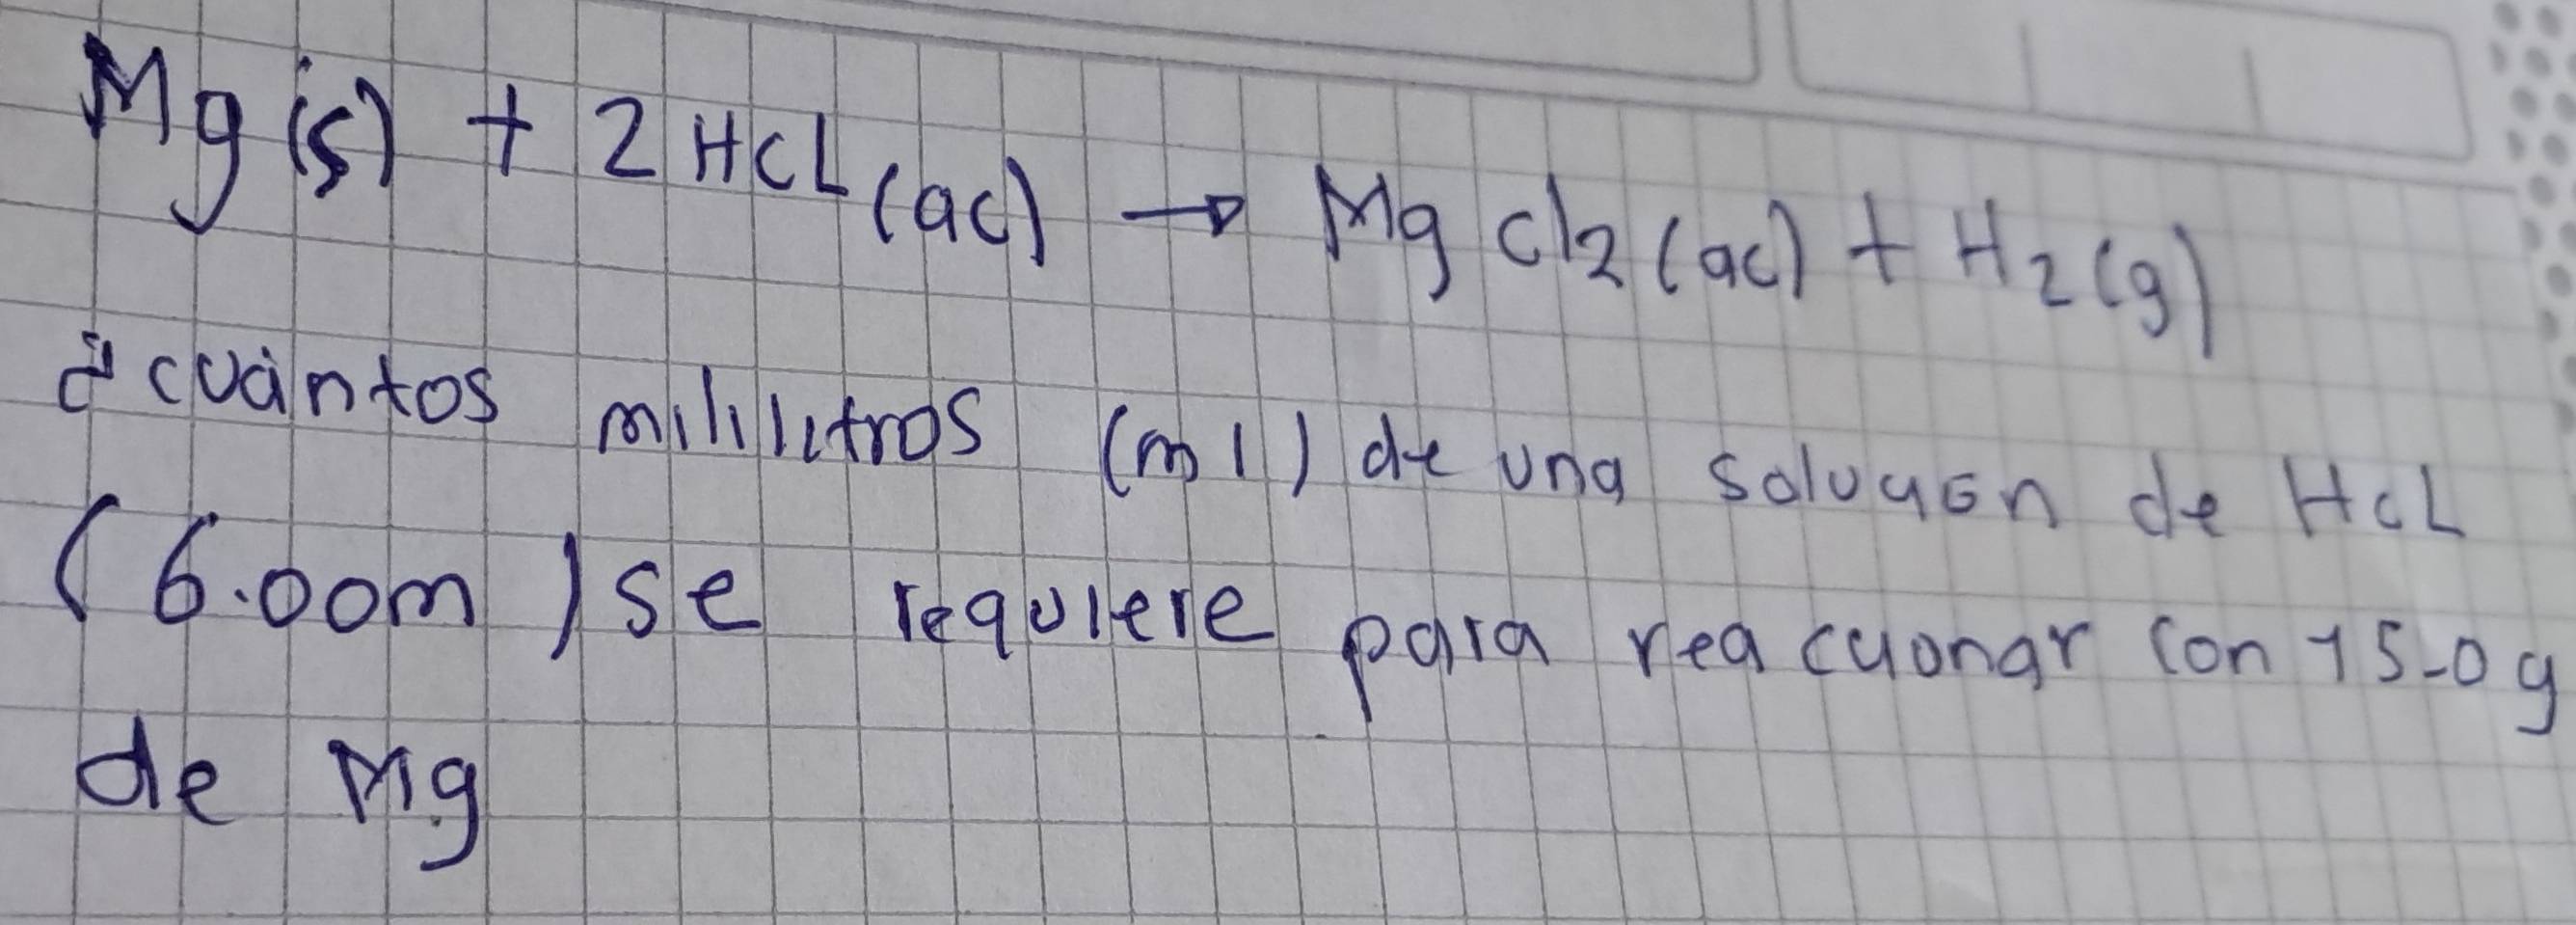 Mg(s) + 2HCL(ac) → MgCl2(ac) + H2(g)
¿cuántos mililitros (ml) de una solución de HCL
(6.00m) se requiere para reaccionar con 15.0g
de Mg